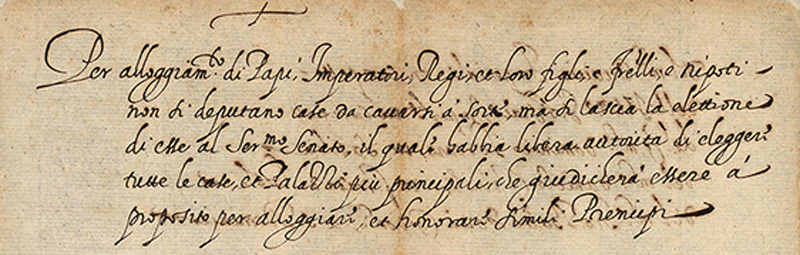 Per alloggiam.to di Papi, Imperatori, Regi, et loro figli, e frèlli, è nipoti
non si deputano case da cavarsi à sorte, mà si lascia la elettione
di esse al Ser.mo Senato, il quale habbia libera autorità di elegger
tutte le case, et Palazzi più principali, che giudicherà essere à
proposito per alloggiare, et honorare simili Prencipi